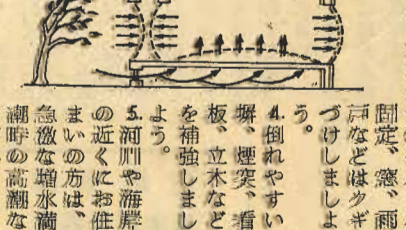 固定、窓、雨
戸などはクギ
づけしましょ
う。
4.倒れやすい
塀、煙突、看
板、立木など
を補強しまし
よう。
5.河川や海岸
の近くにお住
まいの方は、
急激な増水満
潮時の高潮な